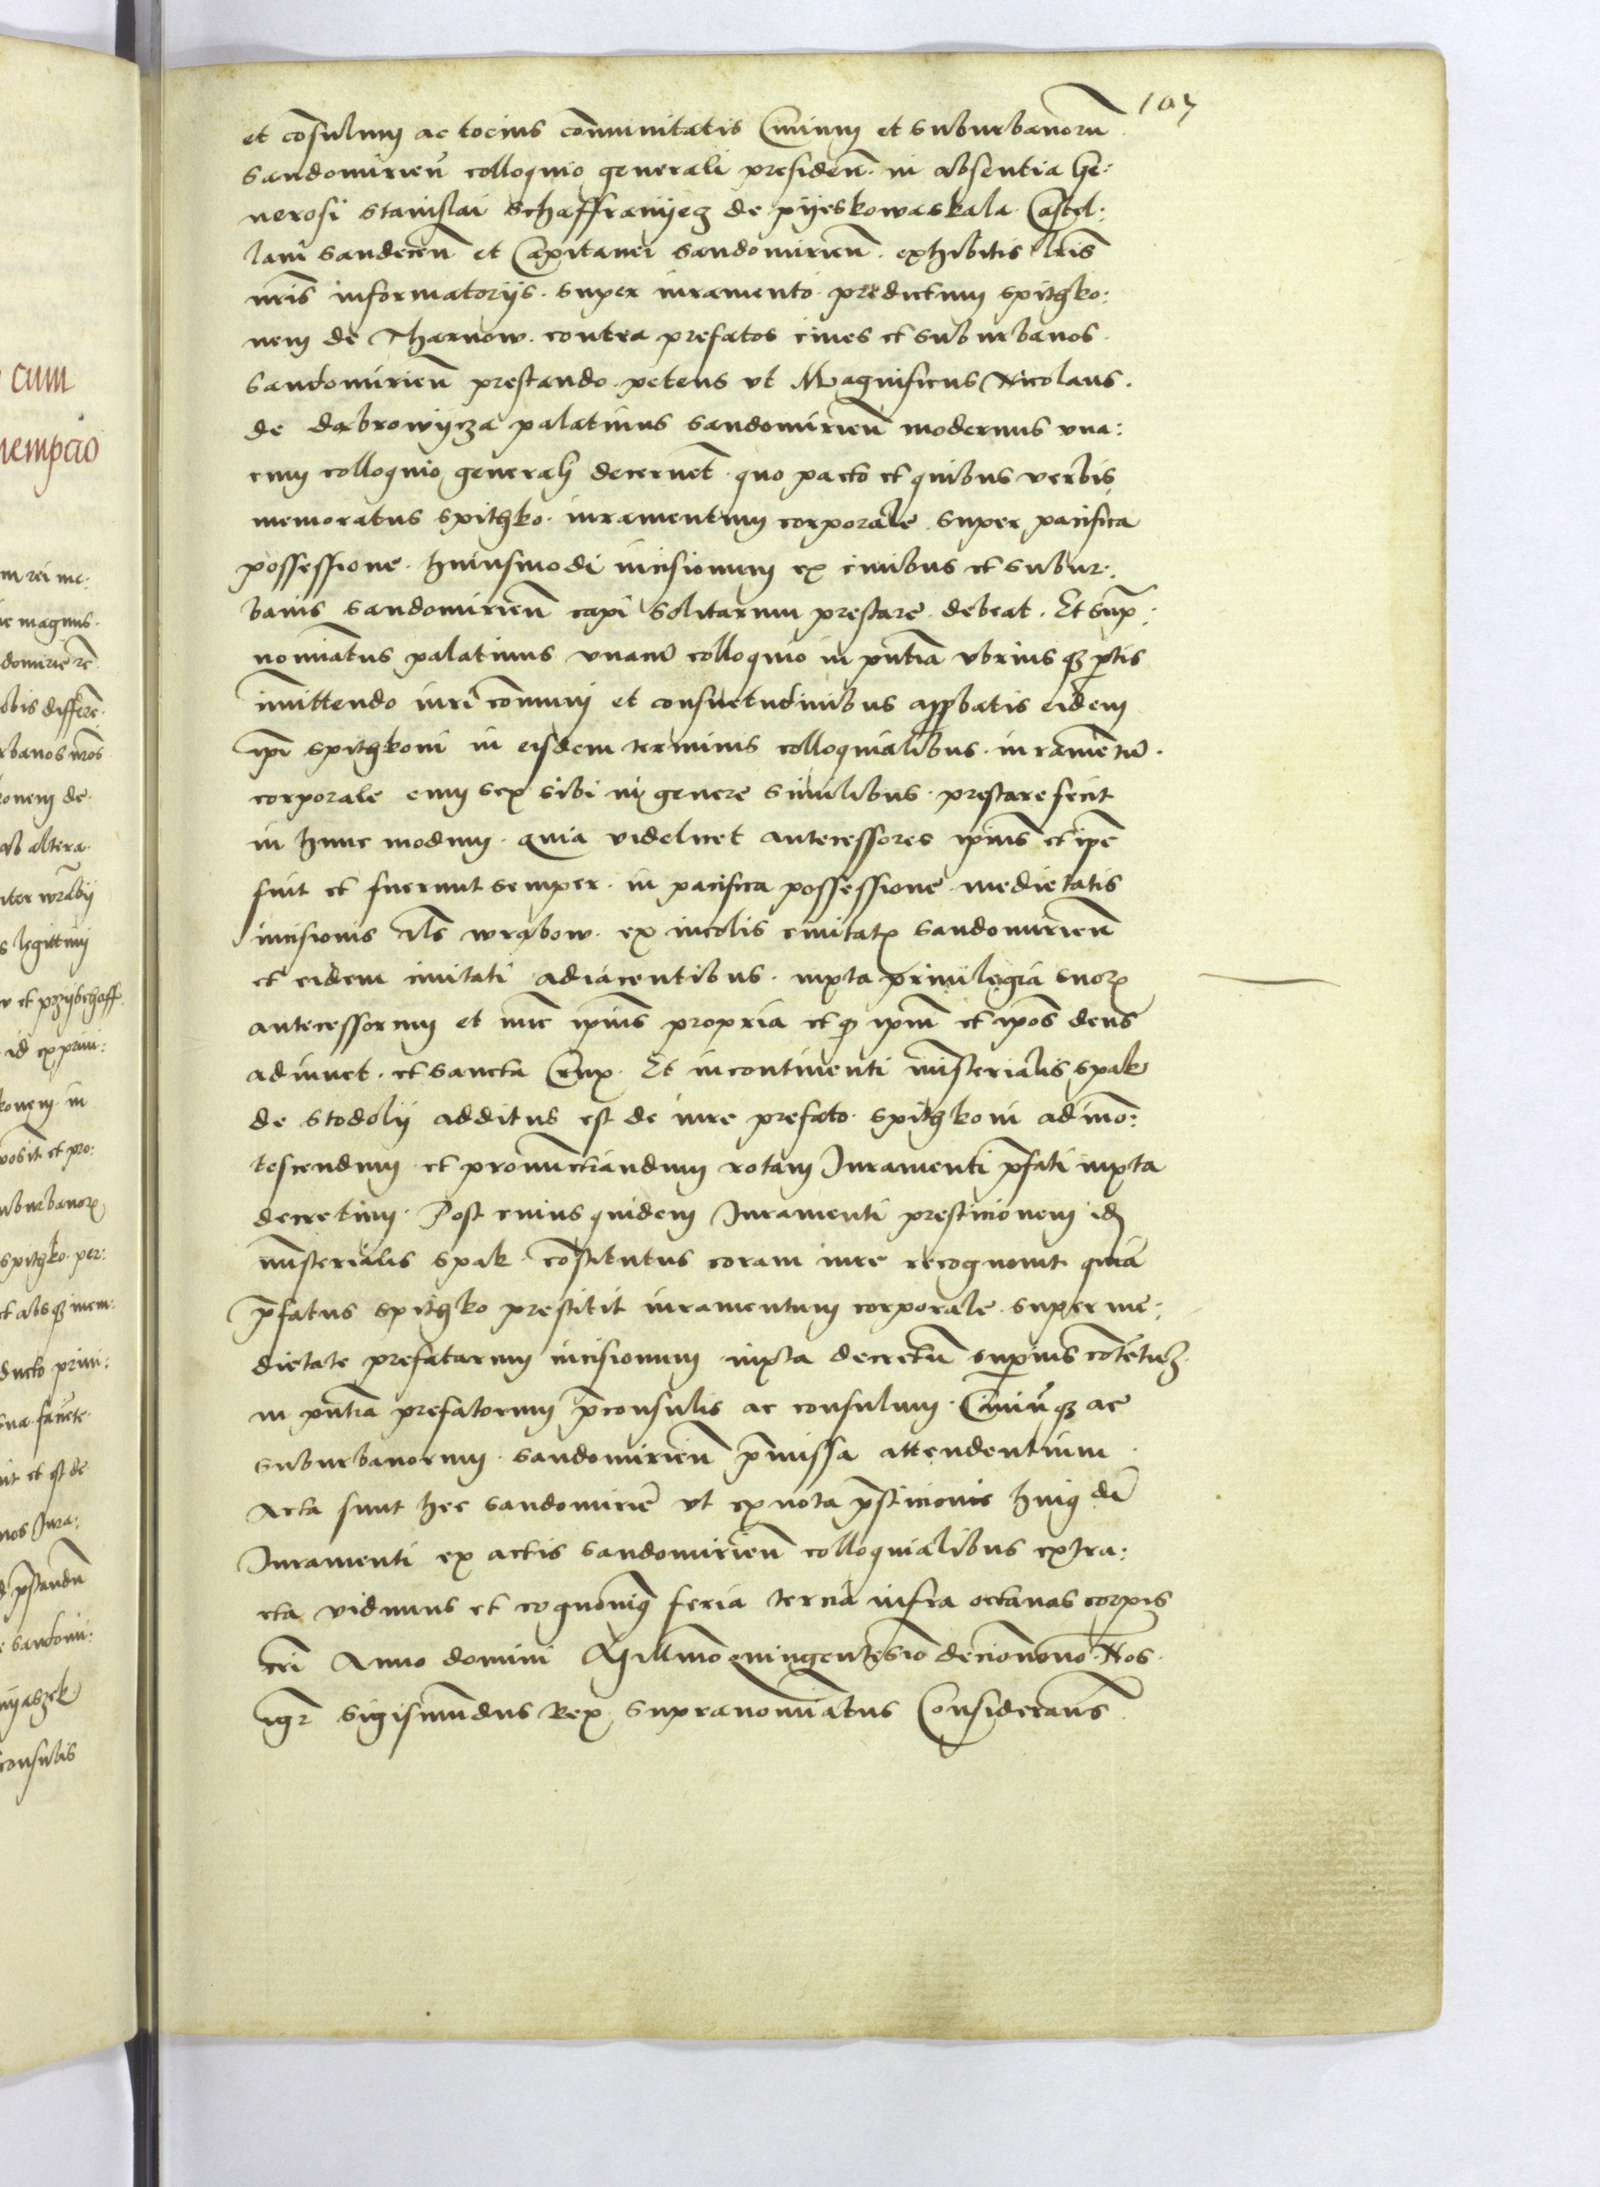 107
et cōsulum ac tocius cōmunitatis Civium et suburbanorū
sandomirieñ colloquio generali presideñ. in absentia Ge:
nerosi Stanislai Schaffranyecz de pyeskowaskala Castel:
lani sandeceñ et Capitanei sandomirieñ. exhibitis lr̄is
nr̄is informatoriis. super iuramento predictum spithko:
nem de Tharnow. contra prefatos cives et suburbanos.
sandomirieñ prestando petens vt Magnificus Nicolaus.
de dabrowycza palatinus sandomirieñ modernus vna:
cum colloquio generali decernet. quo pacto et quibus verbis
memoratus spithko. iuramentum corporale super pacifica
possessione. huiusmodi incisionum ex civibus et subur:
banis sandomirieñ capi solitarum prestare debeat. Et sup̄:
nominatus palatinus vnacū colloquio in pn̄tia vtriusqȝ ptis
īmittendo iuri cōmuni et consuetudinibus approbatis eidem
ip̄i spithkoni in eisdem terminis colloquialibus iuramētū.
corporale cum sex sibi in genere similibus prestare fecit
in hunc modum. quia videlicet antecessores ip̄ius et ip̄e
fuit et fuerunt semper. in pacifica possessione medietatis
incisionis als̄ wrąbow. ex incolis civitatꝭ sandomirieñ
et eidem civitati adiacentibus. iuxta privilegia suoꝝ
antecessorum et nūc ip̄ius propria et ꝙ ip̄um et ip̄os deus
adiuvet. et sancta Crux. Et incontinenti ministerialis spak
de stodoly additus est de iure prefato spithkoni ad īno:
tescendum et pronunctiandum rotam Iuramenti p̄fati iuxta
decretum. Post cuius quidem Iuramenti presticionem idē
ministerialis spak cōstitutus coram iure recognovit quia
p̄fatus spithko prestitit iuramentum corporale super me:
dietate prefatarum incisionum iuxta decretū superius cōtētuȝ.
in pn̄tia prefatorum p̄consulis ac consulum. Civiūqȝ ac
suburbanorum. sandomirieñ p̄missa attendentium
Acta sunt hec sandomirie vt ex nota p̄sticionis huiꝰ di
Iuramenti ex actis sandomirieñ colloquialibus extra:
cta vidimus et cognovimꝰ feria tercia infra octavas corpis
cri Anno domini Millm̄o quingentesīo decīonono Nos.
igr̄ Sigismundus Rex supranominatus Considerans
cum
nempcio
ie magnus.
ab altera
s legittimi
et przybchaff.
id ex privi:
konem in
suburbanoꝝ
spithko per:
ducto privi:
consulis